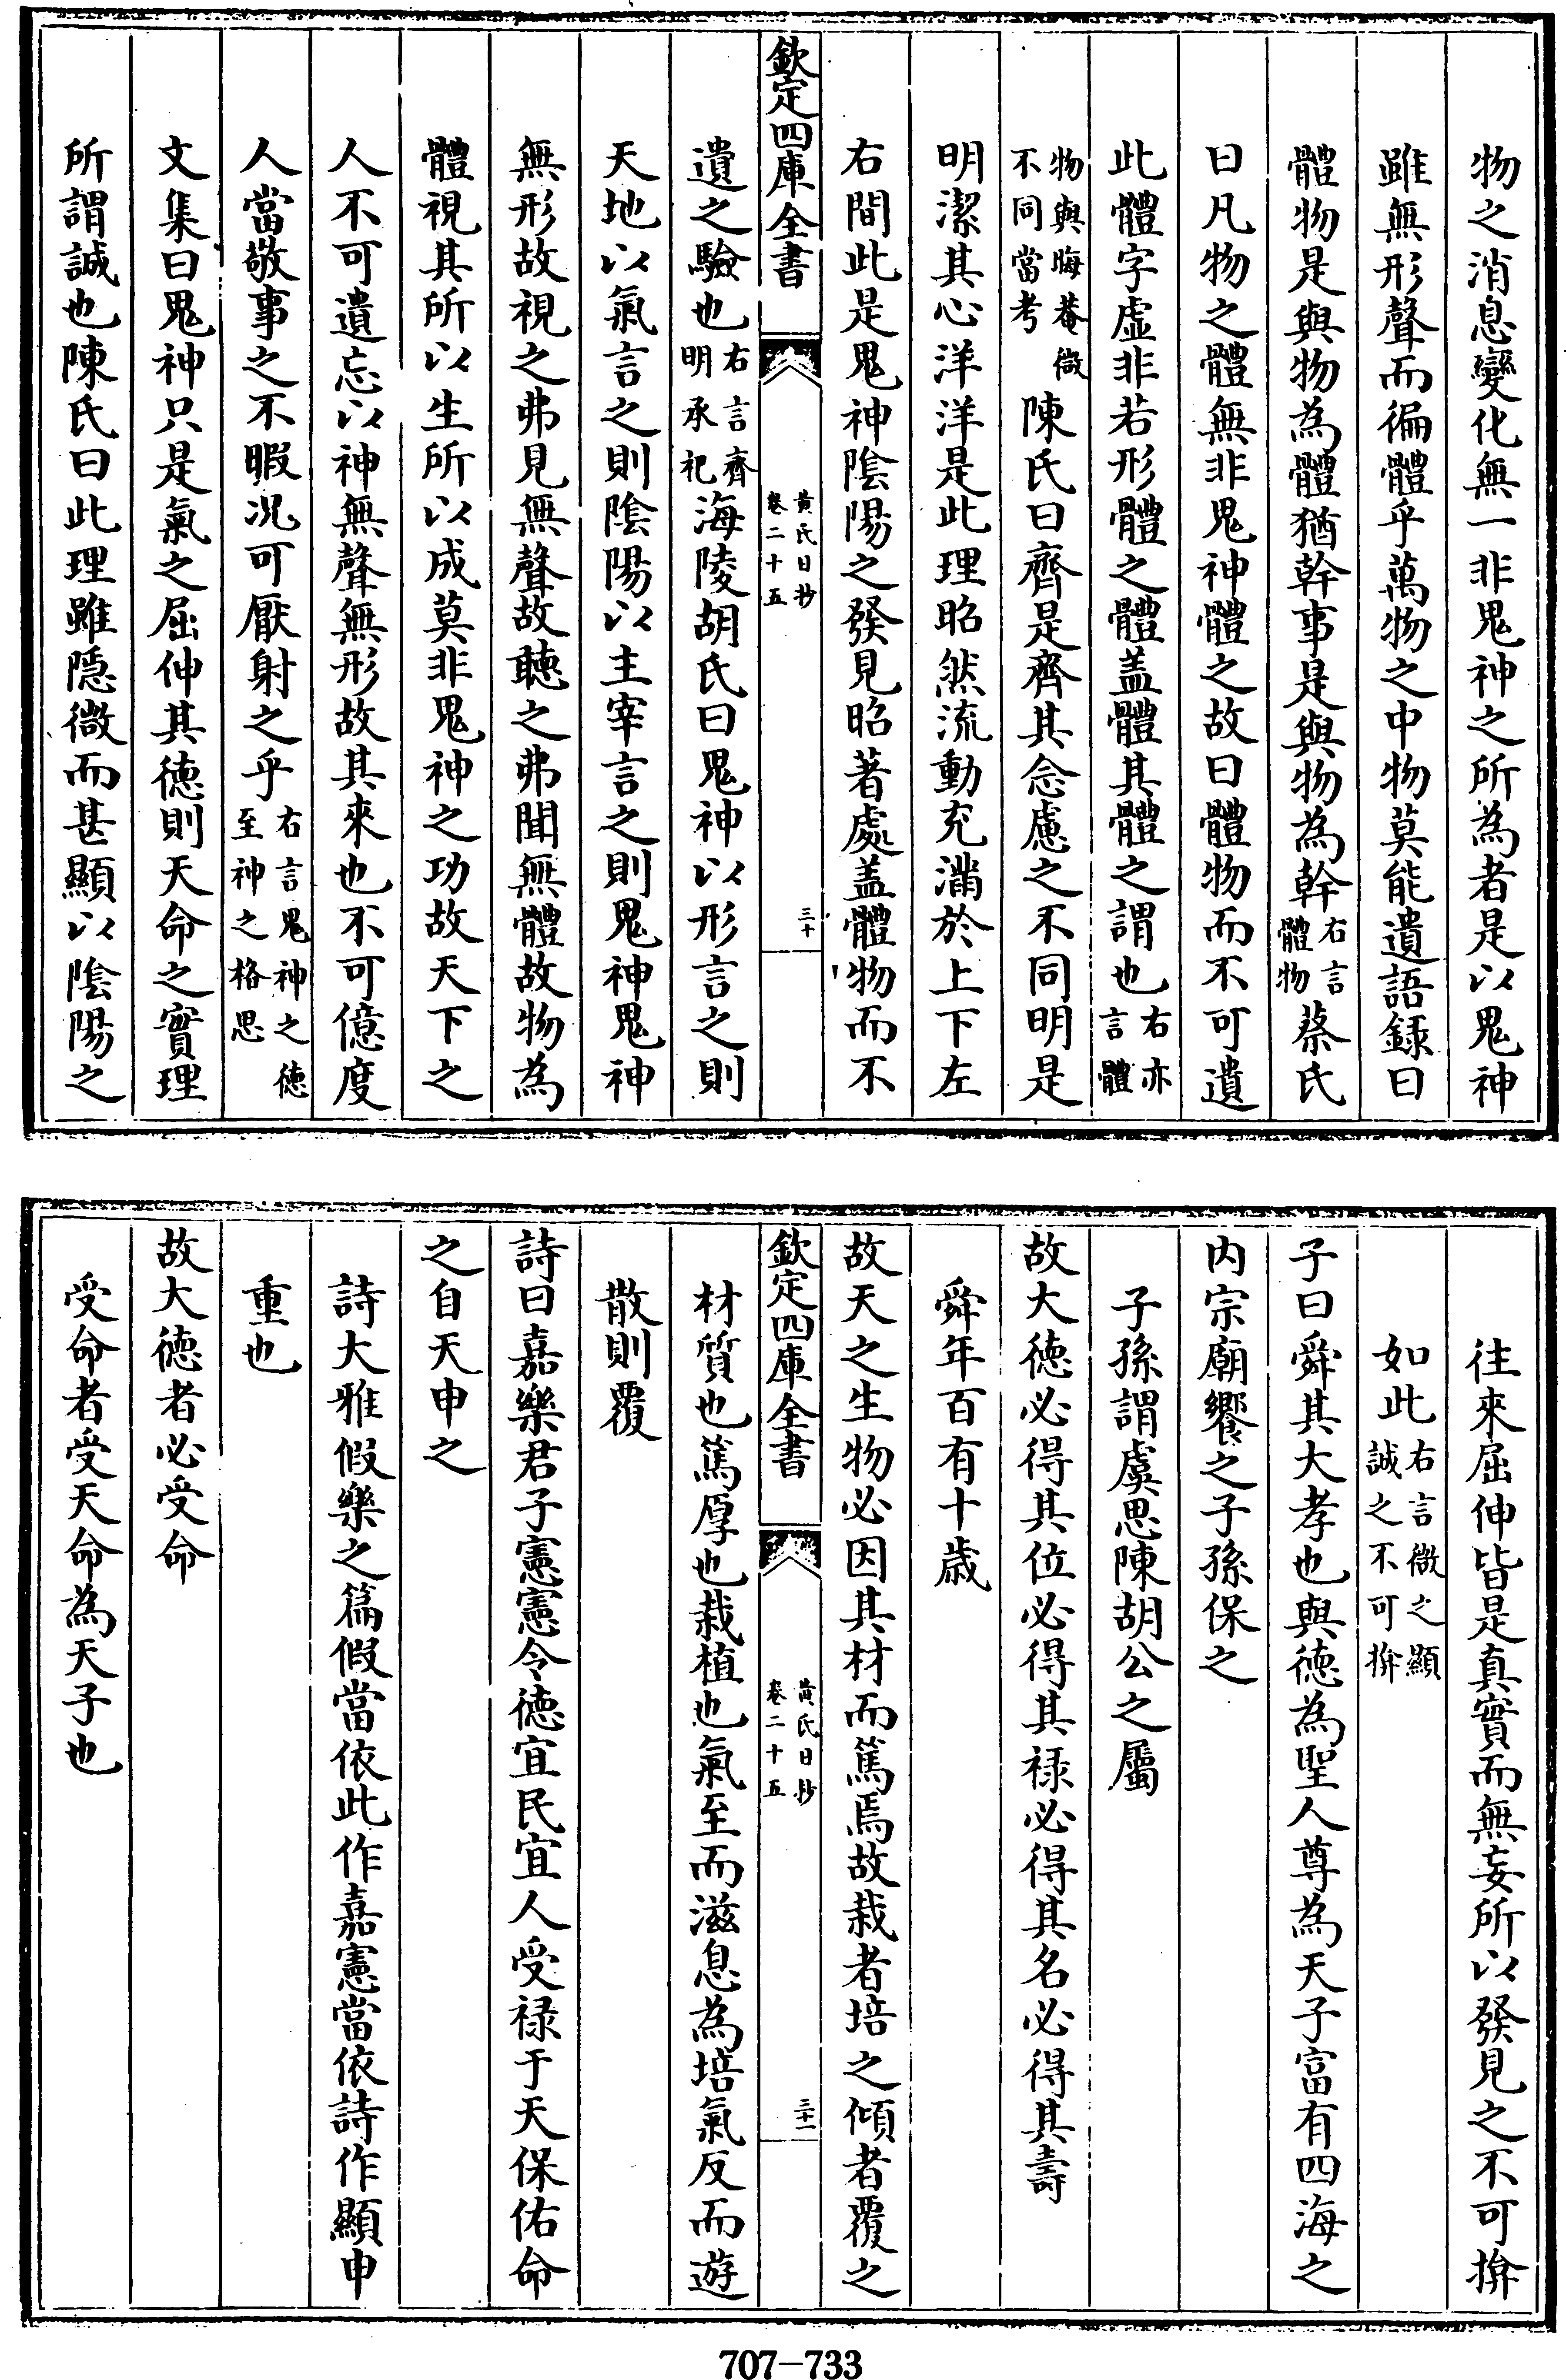 物之消息變化無一非鬼神之所為者是以鬼神
雖無形聲而徧體乎萬物之中物莫能遺語錄曰
體物是與物為體猶幹事是與物為幹右言體物蔡氏
曰凡物之體無非鬼神體之故曰體物而不可遺
此體字虛非若形體之體盖體其體之謂也右亦言體
物與晦菴微不同當考陳氏曰齊是齊其念慮之不同明是
明潔其心洋洋是此理昭然流動充滿於上下左
右間此是鬼神陰陽之發見昭著處盖體物而不
欽定四庫全書
黄氏日抄
卷二十五
三十
遺之驗也右言齊明承祀海陵胡氏曰鬼神以形言之則
天地以氣言之則陰陽以主宰言之則鬼神鬼神
無形故視之弗見無聲故聽之弗聞無體故物為
體視其所以生所以成莫非鬼神之功故天下之
人不可遺忘以神無聲無形故其來也不可億度
人當敬事之不暇况可厭射之乎右言鬼神之德至神之格思
文集曰鬼神只是氣之屈伸其德則天命之實理
所謂誠也陳氏曰此理雖隱微而甚顯以陰陽之
往來屈伸皆是真實而無妄所以發見之不可揜
如此右言微之顯誠之不可揜
子曰舜其大孝也與德為聖人尊為天子富有四海之
内宗廟饗之子孫保之
子孫謂虞思陳胡公之屬
故大德必得其位必得其祿必得其名必得其壽
舜年百有十歲
故天之生物必因其材而篤焉故栽者培之傾者覆之
欽定四庫全書
黄氏日抄
卷二十五
三十一
材質也篤厚也栽植也氣至而滋息為培氣反而遊
散則覆
詩曰嘉樂君子憲憲令德宜民宜人受祿于天保佑命
之自天申之
詩大雅假樂之篇假當依此作嘉憲當依詩作顯申
重也
故大德者必受命
受命者受天命為天子也
707-733